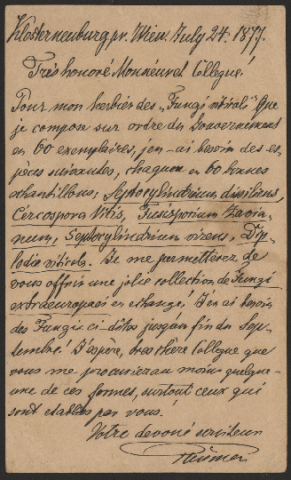 Klosterneuburg pr. Wien. July 24. 1877.
Très honoré Monsieur et Collegue!
Pour mon herbier des „Fungi viticoli" que
je compon sur ordre du Gouvernement
en 60 exemplaires, j'en-ai besoin des es-
pèces suivantes, chaque en 60 bonnes
échantillons: Septocylindrium dissiliens,
Cercospora Vitis, Fusisporium Zavia-
num, Septocylindrium virens, Dip-
lodia viticola. Je me permetterez de
vous offrir une jolie collection de Fungi
extraeuropaei en echange! J'en ai besoin
des Fungis ci-dits jusqu'à fin du Sep-
tembre! J'espère, très chère Collegue que
vous me procurerez au moins quelqu'-
une de ces formes, surtout ceux qui
sont etablies par vous!
Votre devoué serviteur
Thümen